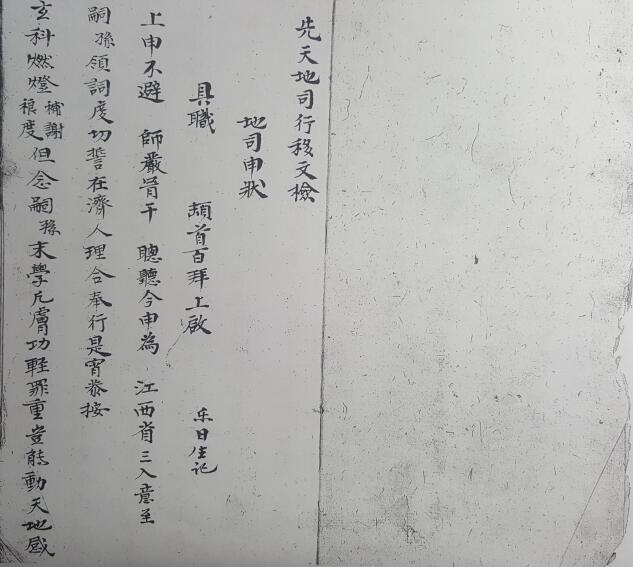 先天地司行移文檢
地司申狀
具職 頓首百拜上啟 乐日生记
上申不避 師嚴冐干 聰聽今申為 江西省三入意至
嗣孫領詞度切誓在濟人理合奉行是宵恭按
玄科燃燈補謝禳度但念嗣孫末學凡膚功輕罪重豈能動天地感